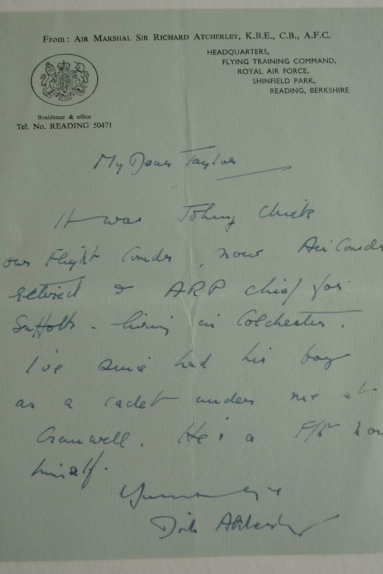 From: AIR MARSHAL SIR RICHARD ATCHERLEY, K.B.E., C.B., A.F.C.
HEADQUARTERS,
FLYING TRAINING COMMAND,
ROYAL AIR FORCE,
SHINFIELD PARK,
READING, BERKSHIRE
Residence & office
Tel. No. READING 50471
My Dear Taylor
It was Johny Chick
our Flight Comdr, now Air Comdr
retired & ARP chief for
Suffolk - living in Colchester.
I've since had his boy
as a cadet under me at
Cranwell. He's a F/Lt now
himself.
Dick Atcherley